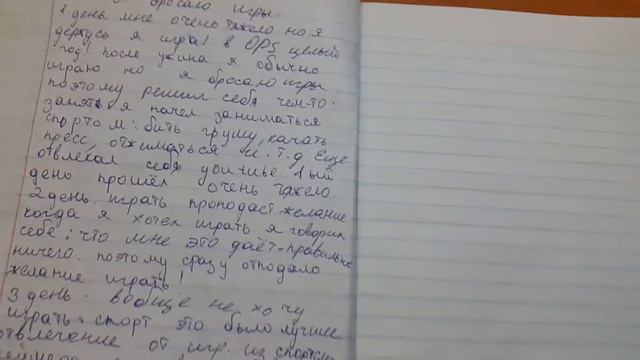 бросаю игры.
1 день. мне очень тяжело но я
держусь я играл в OPS целый
год, после ужина я обычно
играю но я бросаю игры
поэтому решил себя чем-то
занять я начел заниматься
спортом: бить грушу, качать
пресс, отжиматься и.т.д. Еще
отвлекал себя 1 ый
день прошёл очень тяжело.
2 день. играть проподаст желание
когда я хотел играть я говорил
себе: что мне это даёт-правильно
ничего. поэтому сразу отподало
желание играть!
3 день. вообще не хочу
играть. спорт это было лучшее
отвлечение от игр. из